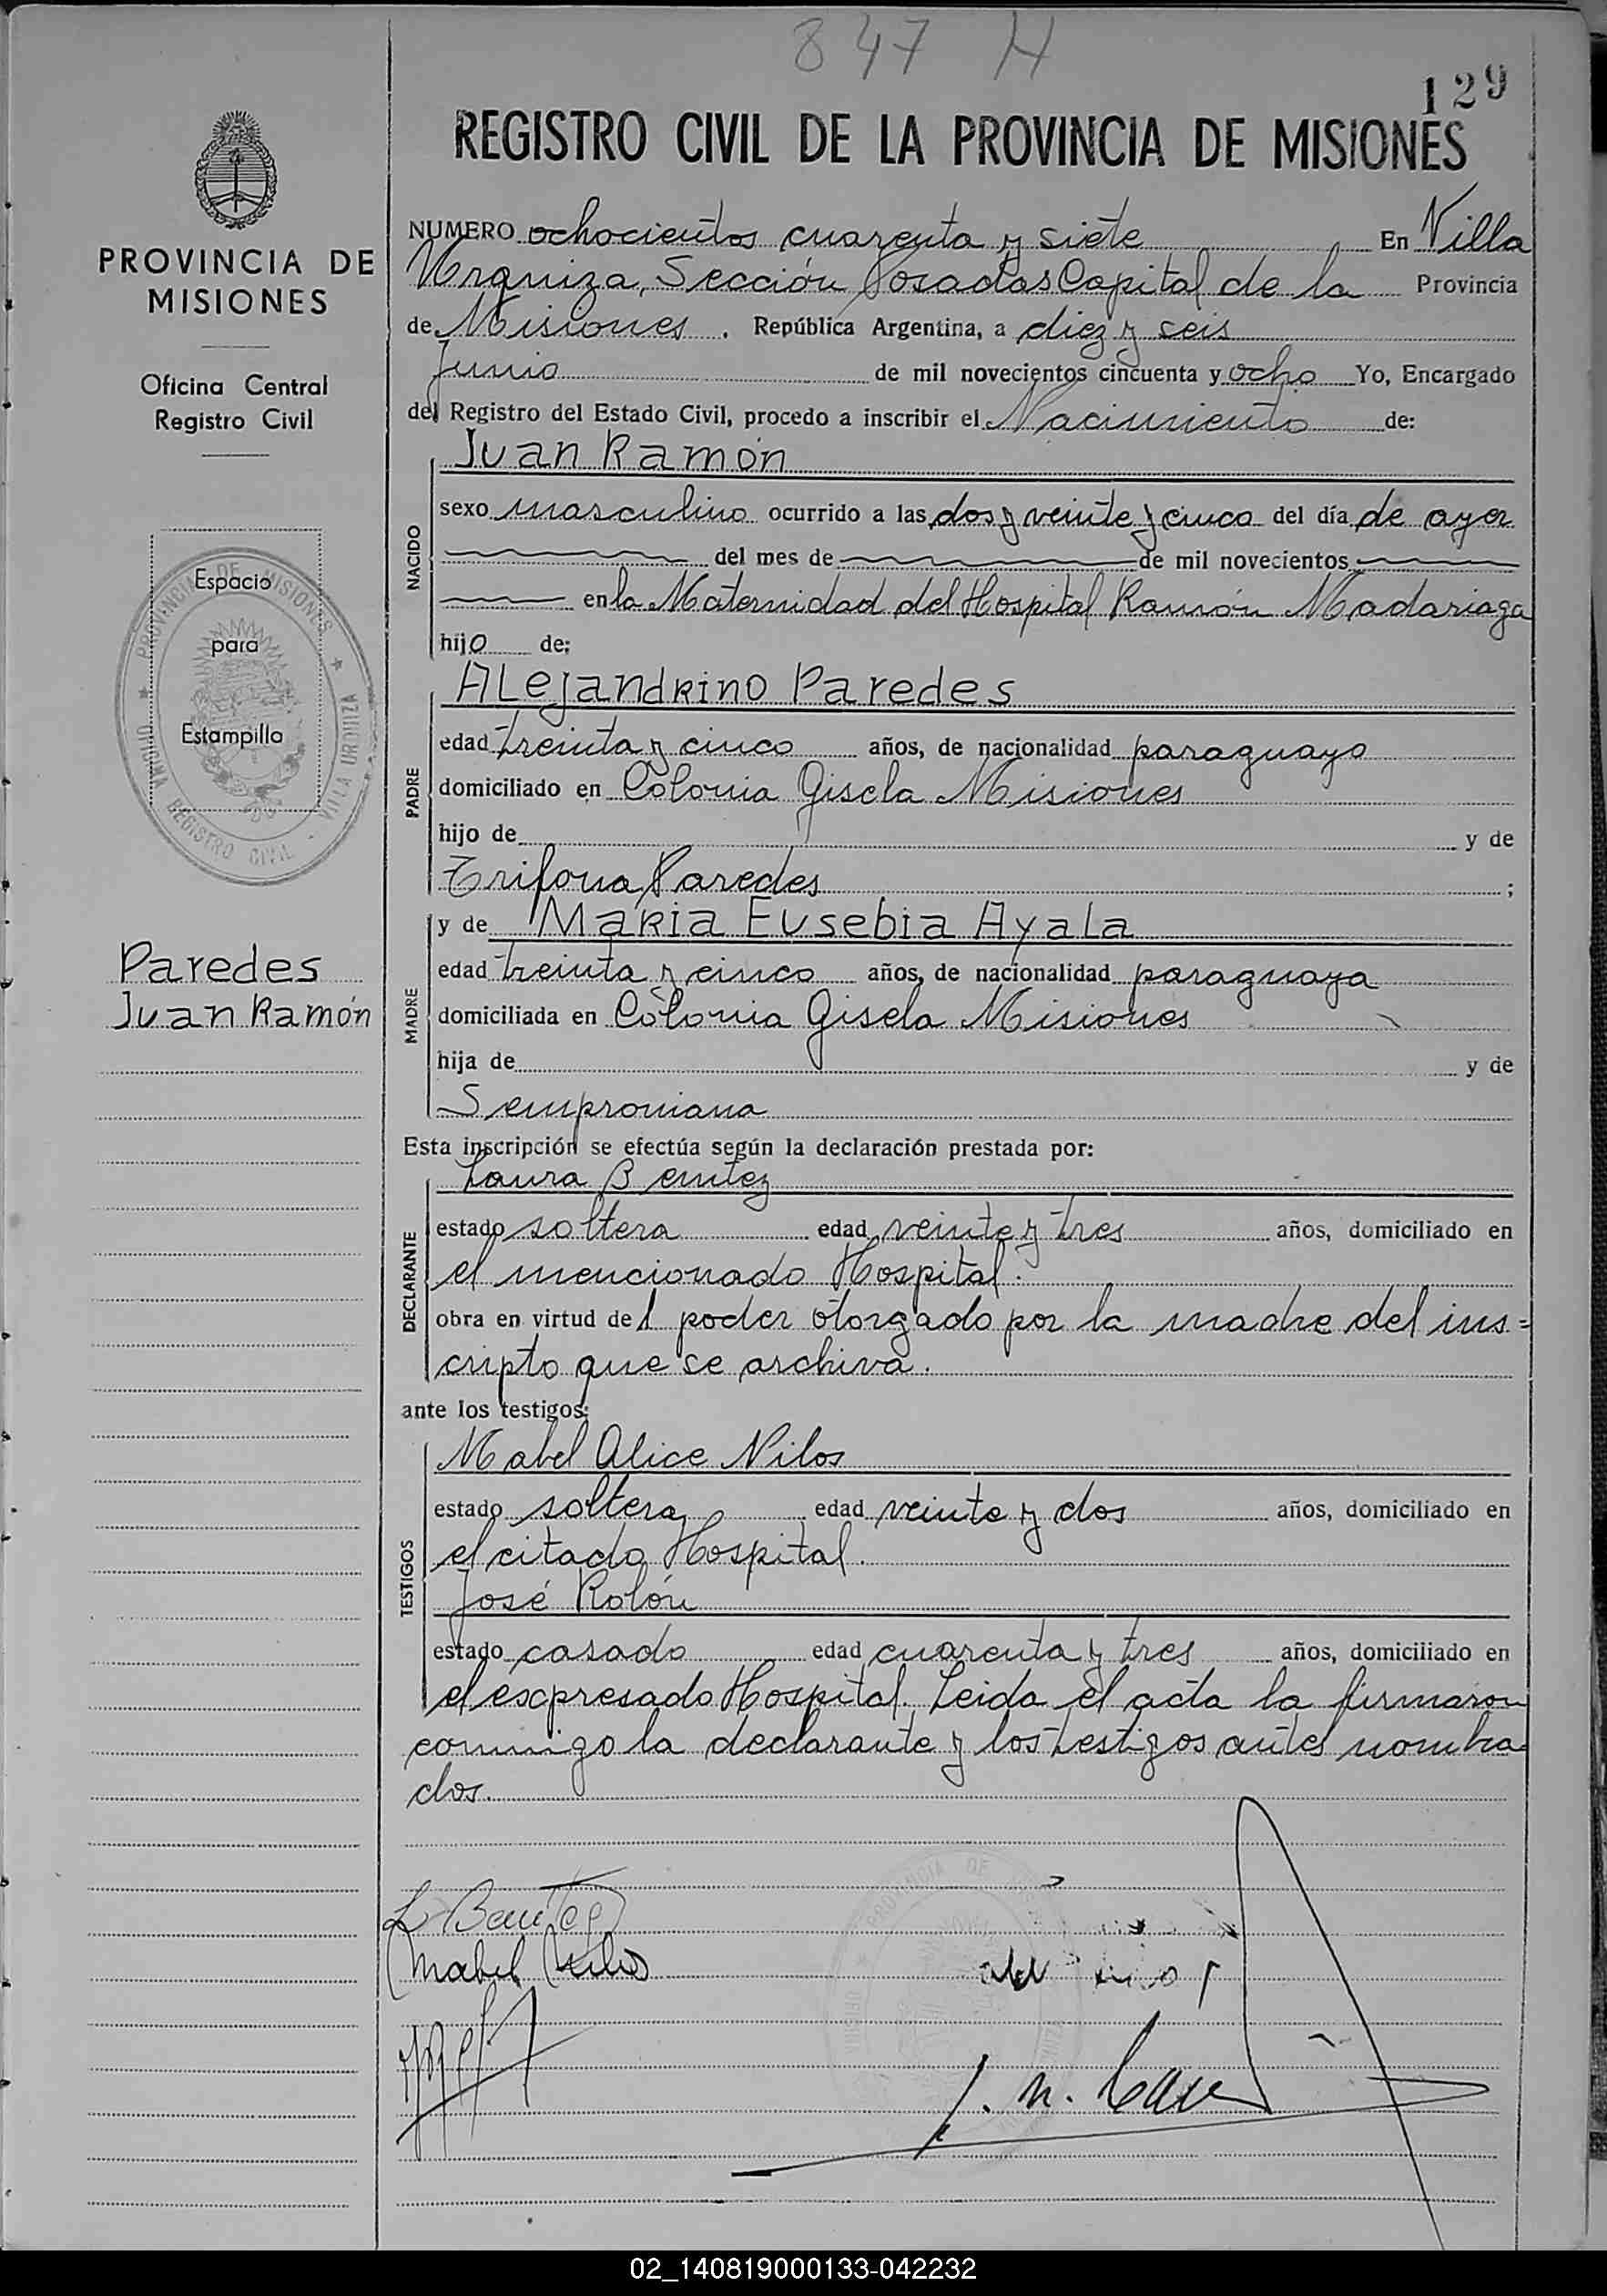 847 H
129
REGISTRO CIVIL DE LA PROVINCIA DE MISIONES
PROVINCIA DE
MISIONES
Oficina Central
Registro Civil
Espacio
para
Estampilla
PROVINCIA DE MISIONES
OFICINA REGISTRO CIVIL - VILLA URQUIZA
Paredes
Juan Ramón
NUMERO ochocientos cuarenta y siete En Villa
Urquiza, Sección Posadas Capital de la Provincia
de Misiones. República Argentina, a diez y seis
Junio de mil novecientos cincuenta y ocho Yo, Encargado
del Registro del Estado Civil, procedo a inscribir el Nacimiento de:
NACIDO
Juan Ramón
sexo masculino ocurrido a las dos y veinte y cinco del día de ayer
del mes de de mil novecientos
en la Maternidad del Hospital Ramón Madariaga
hijo de:
PADRE
Alejandrino Paredes
edad treinta y cinco años, de nacionalidad paraguayo
domiciliado en Colonia Gisela Misiones
hijo de y de
Trifona Paredes ;
MADRE
y de Maria Eusebia Ayala
edad treinta y cinco años, de nacionalidad paraguaya
domiciliada en Colonia Gisela Misiones
hija de y de
Semproniana
Esta inscripción se efectúa según la declaración prestada por:
DECLARANTE
Laura Benitez
estado soltera edad veinte y tres años, domiciliado en
el mencionado Hospital.
obra en virtud del poder otorgado por la madre del ins=
cripto que se archiva.
ante los testigos:
TESTIGOS
Mabel Alice Nilos
estado soltera edad veinte y dos años, domiciliado en
el citado Hospital.
José Rolón
estado casado edad cuarenta y tres años, domiciliado en
el expresado Hospital. Leida el acta la firmaron
conmigo la declarante y los testigos antes nombra
dos.
L Benitez
Mabel Nilos
02_140819000133-042232